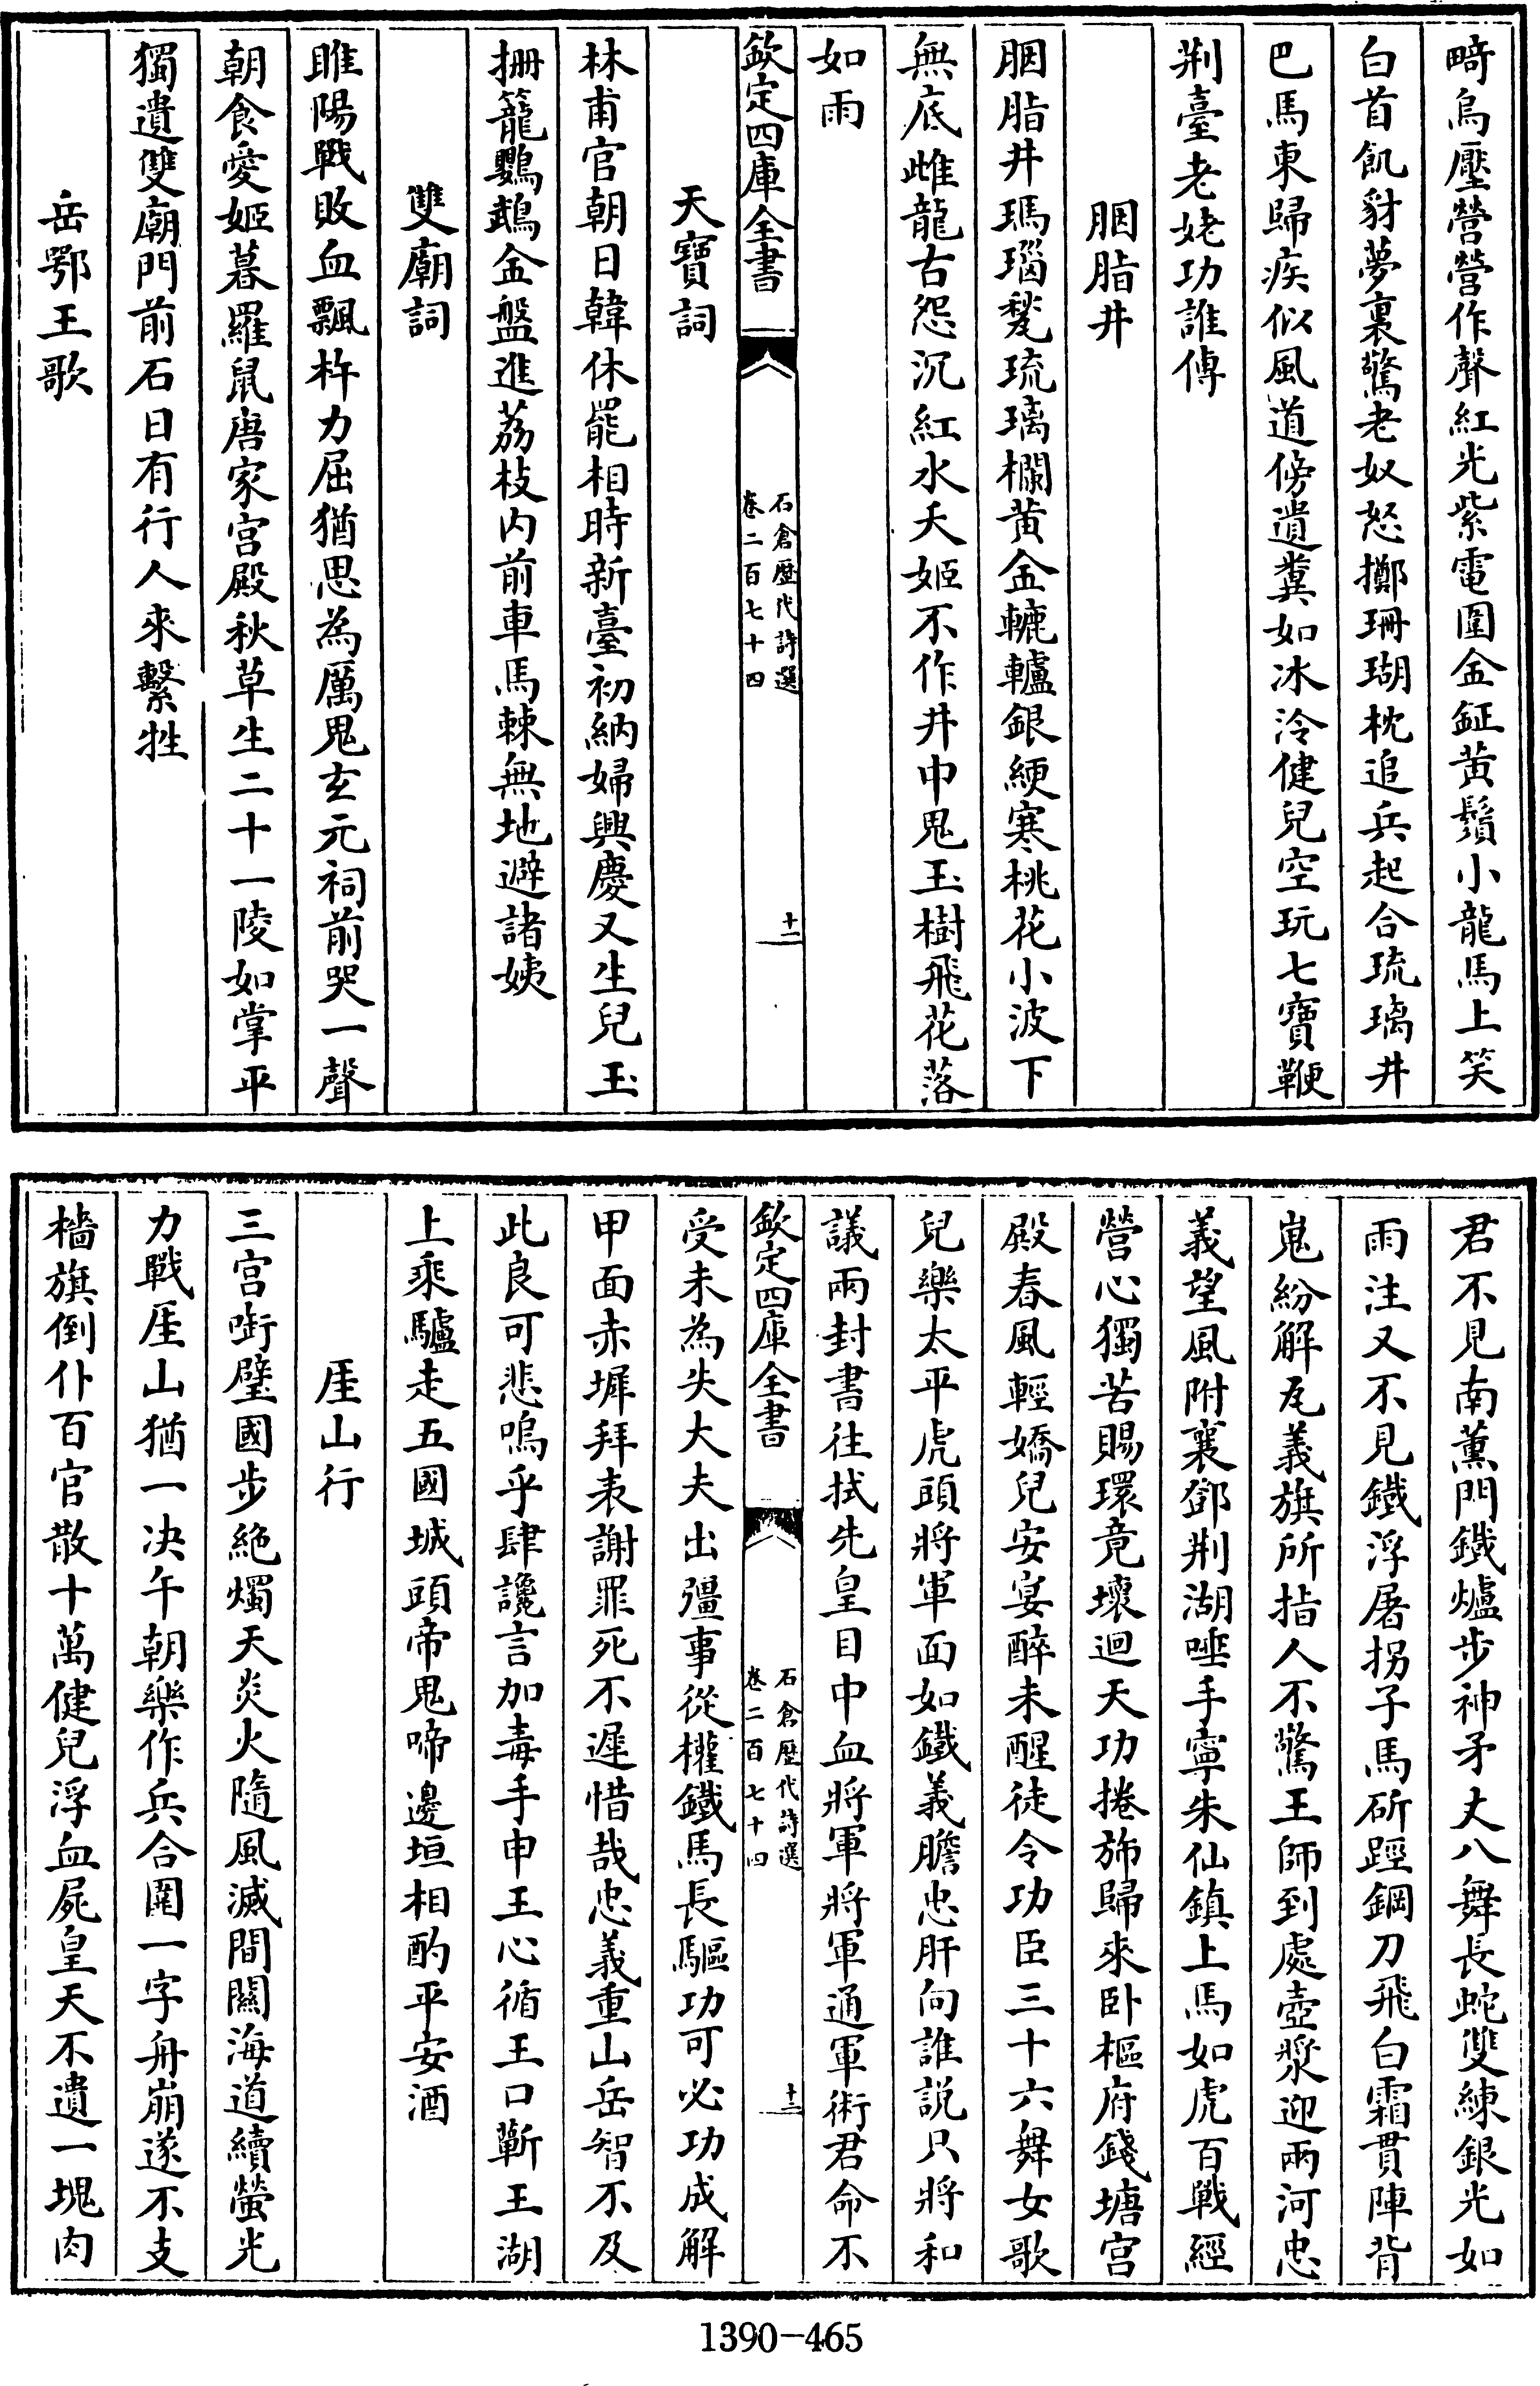 畸烏壓營營作聲紅光紫電圍金鉦黃鬚小龍馬上笑
白首飢豺夢裏驚老奴怒擲珊瑚枕追兵起合琉璃井
巴馬東歸疾似風道傍遺糞如冰冷健兒空玩七寶鞭
荆臺老姥功誰傳
胭脂井
胭脂井瑪瑙甃琉璃欄黃金轆轤銀綆寒桃花小波下
無底雌龍古怨沉紅水夭姬不作井中鬼玉樹飛花落
如雨
欽定四庫全書
石倉歷代詩選
卷二百七十四
十一
天寶詞
林甫官朝日韓休罷相時新臺初納婦興慶又生兒玉
柵籠鸚鵡金盤進荔枝内前車馬棘無地避諸姨
雙廟詞
睢陽戰敗血飄杵力屈猶思為厲鬼玄元祠前哭一聲
朝食愛姬暮羅鼠唐家宫殿秋草生二十一陵如掌平
獨遺雙廟門前石日有行人來繫牲
岳鄂王歌
君不見南薰門鐵爐步神矛丈八舞長蛇雙練銀光如
雨注又不見鐵浮屠拐子馬斫踁鋼刀飛白霜貫陣背
嵬紛解瓦義旗所指人不驚王師到處壺漿迎兩河忠
義望風附襄鄧荆湖唾手寧朱仙鎮上馬如虎百戰經
營心獨苦賜環竟壞迴天功捲斾歸來卧樞府錢塘宫
殿春風輕嬌兒安宴醉未醒徒令功臣三十六舞女歌
兒樂太平虎頭將軍面如鐵義膽忠肝向誰説只將和
議兩封書往拭先皇目中血將軍將軍通軍術君命不
欽定四庫全書
石倉歷代詩選
卷二百七十四
十二
受未為失大夫出彊事從權鐵馬長驅功可必功成解
甲面赤墀拜表謝罪死不遲惜哉忠義重山岳智不及
此良可悲嗚乎肆讒言加毒手申王心循王口蘄王湖
上乘驢走五國城頭帝鬼啼邊垣相酌平安酒
厓山行
三宫衘璧國步絶燭天炎火隨風滅間關海道續螢光
力戰厓山猶一决午朝樂作兵合圍一字舟崩遂不支
檣旗倒仆百官散十萬健兒浮血屍皇天不遺一塊肉
1390-465